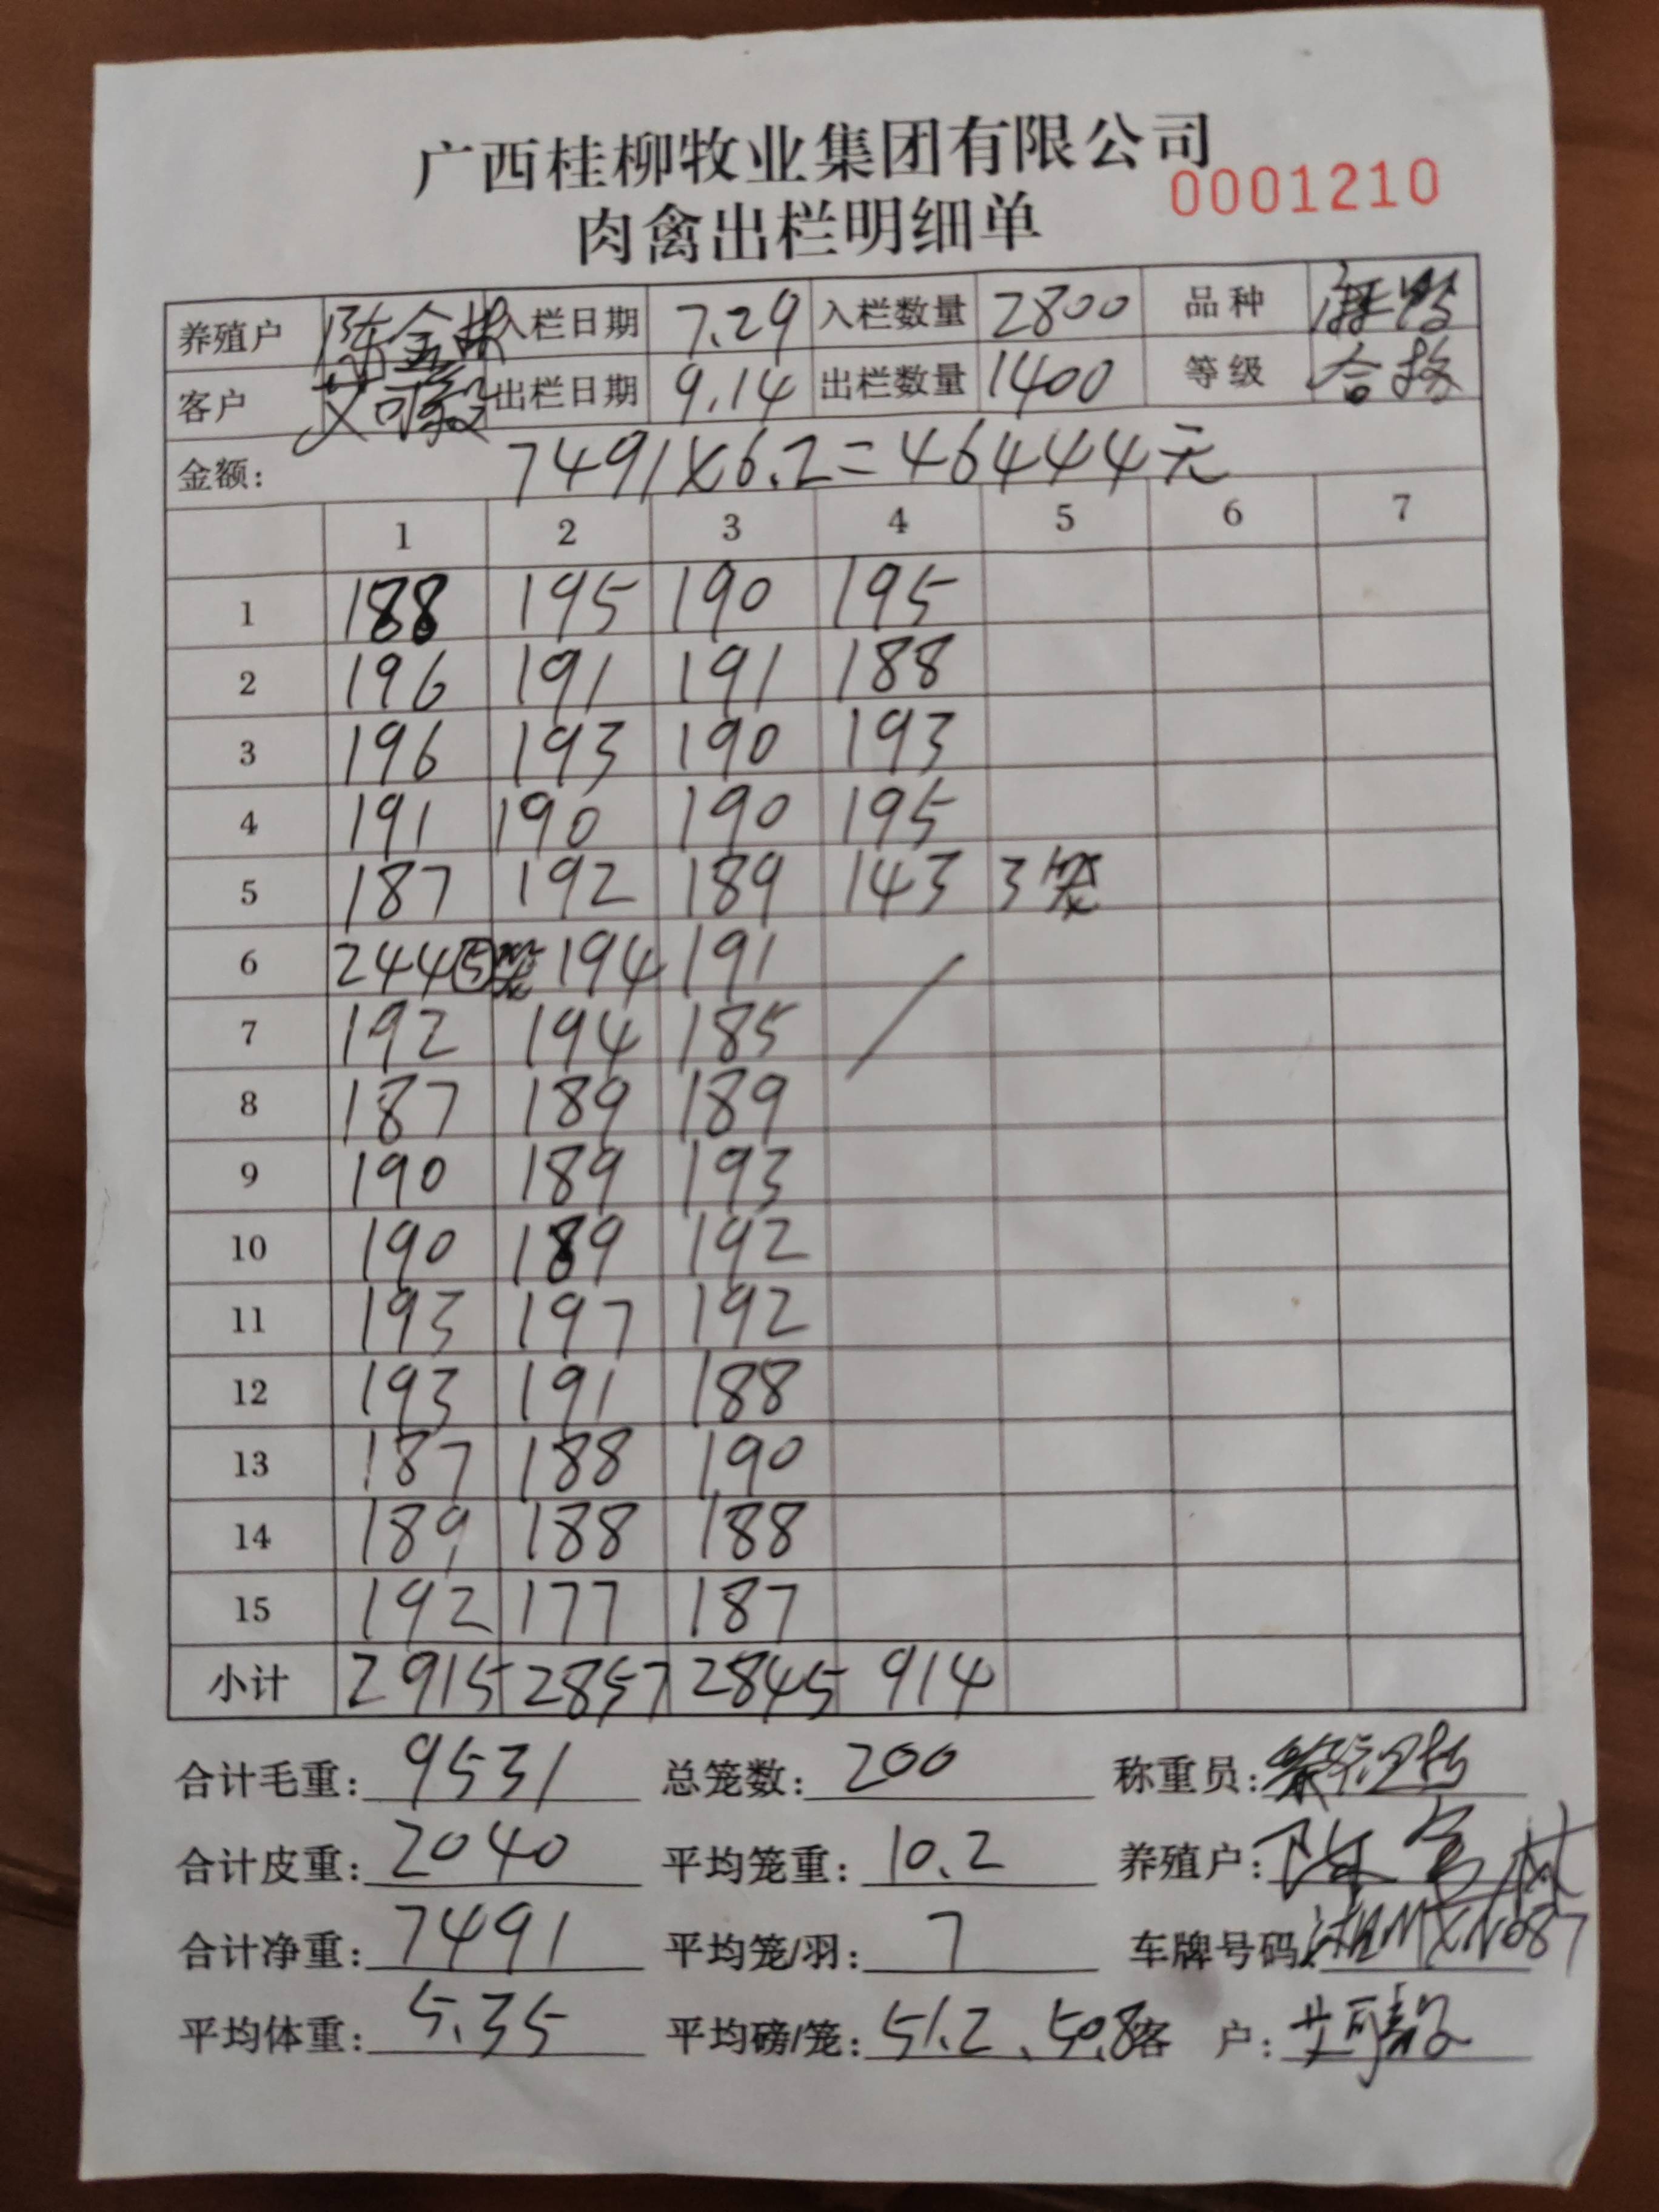 广西桂柳牧业集团有限公司
0001210
肉禽出栏明细单
养殖户 陈金 入栏日期 7.29 入栏数量 2800 品种
客户 艾可毅 出栏日期 9.14 出栏数量 1400 等级 合格
金额: 7491X6.2=46444元
1 2 3 4 5 6 7
1 188 195 190 195
2 196 191 191 188
3 196 193 190 193
4 191 190 190 195
5 187 192 189 143 3笼
6 244⑤笼 194 191
7 192 194 185
8 187 189 189
9 190 189 193
10 190 189 192
11 193 197 192
12 193 191 188
13 187 188 190
14 189 188 188
15 192 177 187
小计 2915 2857 2845 914
合计毛重: 9531 总笼数: 200 称重员:
合计皮重: 2040 平均笼重: 10.2 养殖户: 陈
合计净重: 7491 平均笼/羽: 7 车牌号码:
平均体重: 5.35 平均磅/笼: 51.2、50.8 客 户: 艾可毅